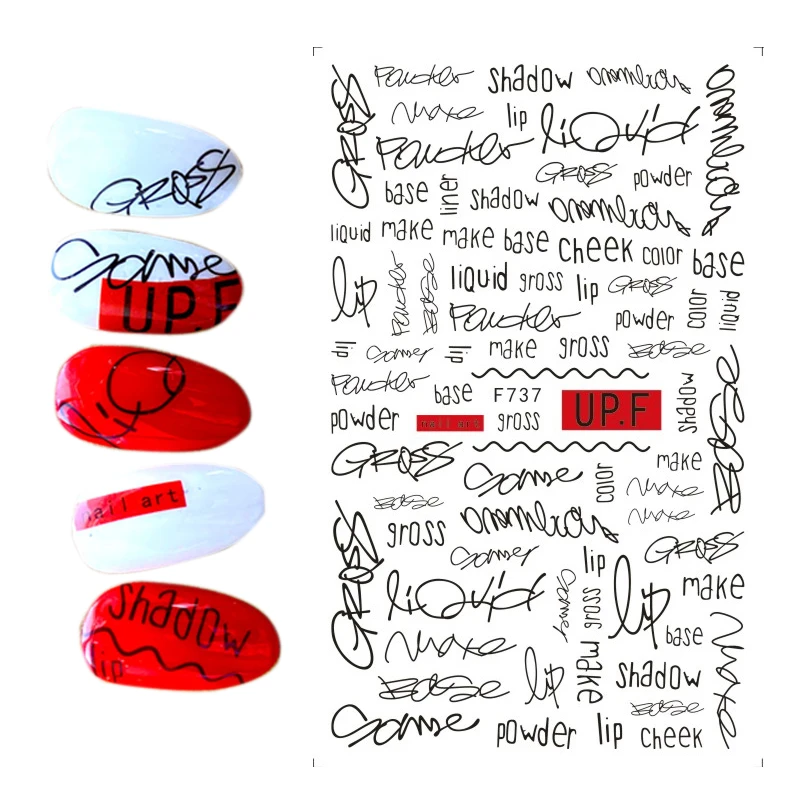 GROSS
Some
UP.F
liq
nail art
shadow
lip
GROSS
Powder shadow
Make lip liquid
Powder GROSS powder
base liner shadow
liquid make make base cheek color base
lip Powder Base liquid gross lip GROSS
Powder powder color liquid
lip Somer lip make gross Base
Powder base F737 UP.F shadow Base
powder nail art gross
GROSS Some color make
Base Make
gross Make
GROSS Somer lip GROSS
liquid Somer gross lip make
Make make base Make
Base lip shadow
Base
Some powder lip cheek